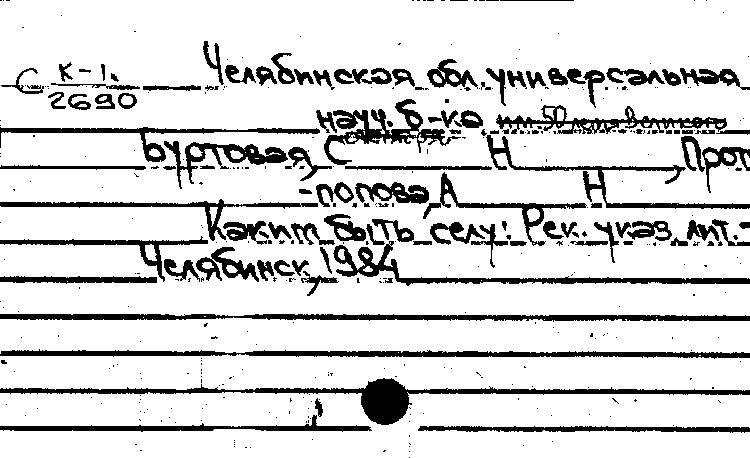 С К-1.
2690
Челябинская обл. универсальная
науч. б-ка им. 50-летия Великого
Октября
Буртовая, С Н , Прот
-попова, А Н
Каким быть селу: Рек. указ. лит.-
Челябинск, 1984